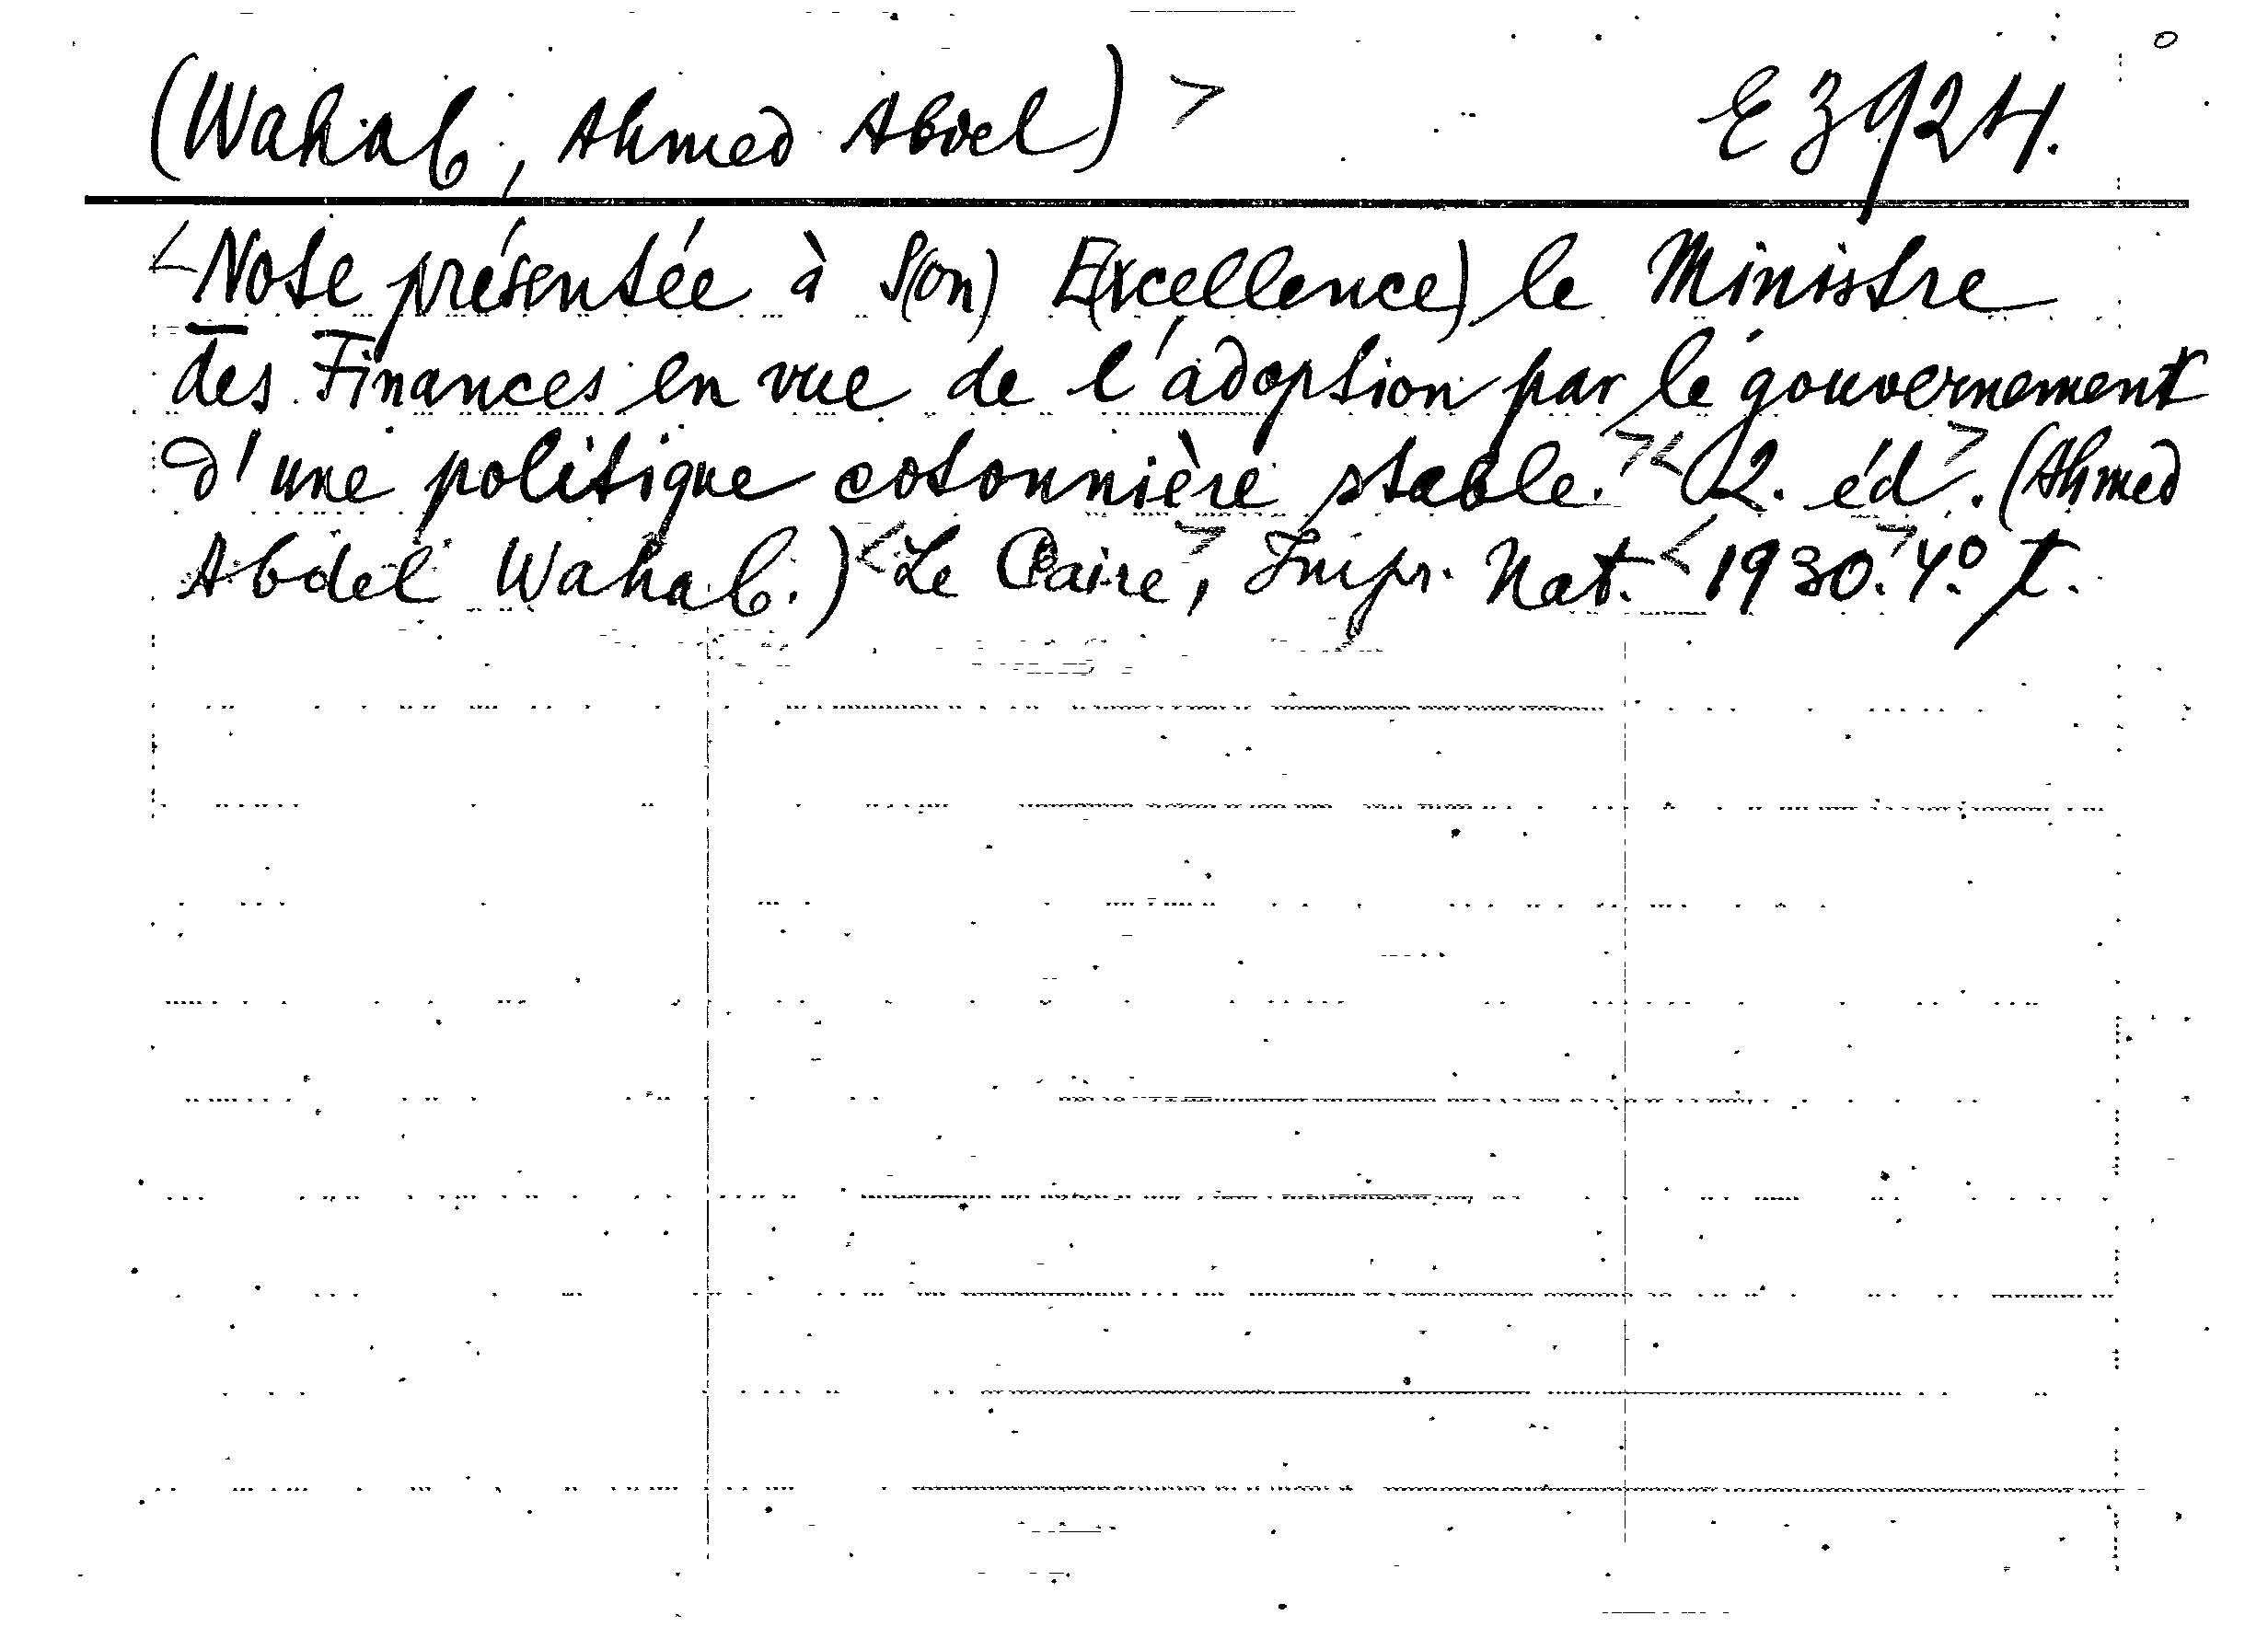 (Wahab, Ahmed Abdel) > E 3924.
<Note présentée à S(on) E(xcellence) le Ministre
des Finances en vue de l'adoption par le gouvernement
d'une politique cotonnière stable.>< 2. éd>. (Ahmed
Abdel Wahab.) <Le Caire>, Impr. Nat. <1930.> 4º. t.